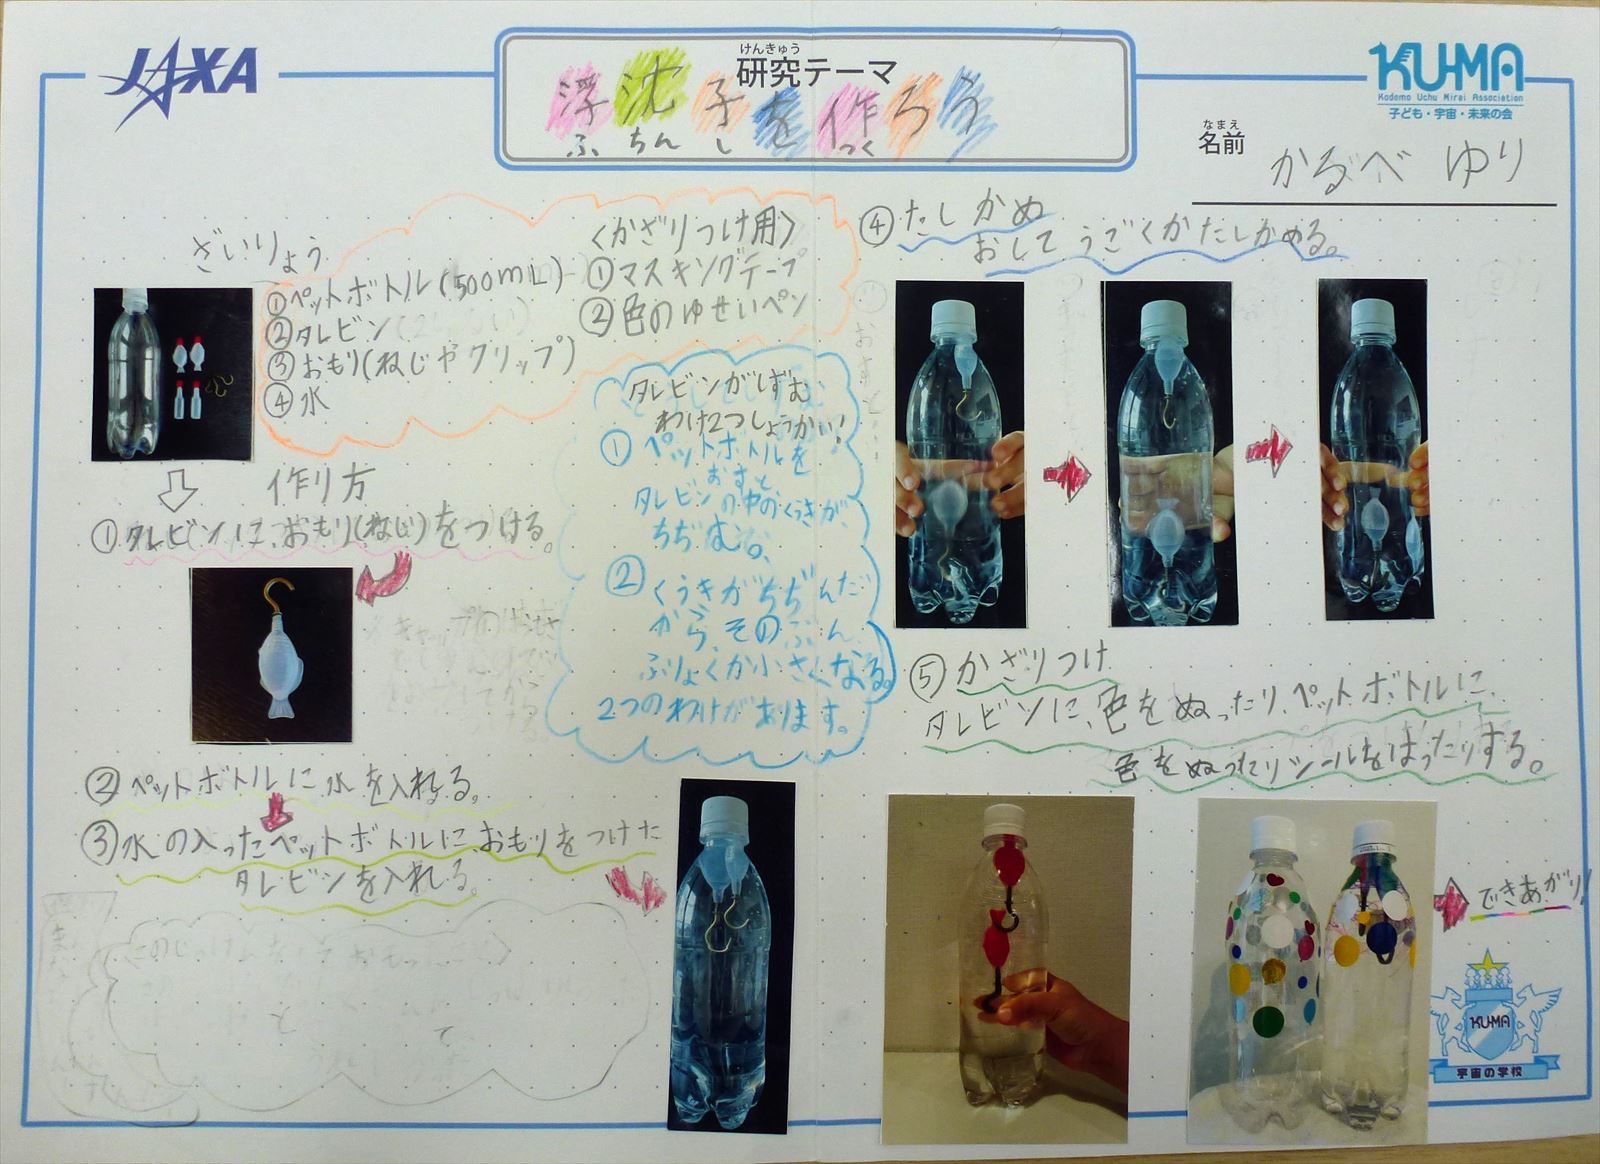 JAXA
けんきゅう
研究テーマ
浮沈子を作ろう
ふちんし つく
KU-MA
Kodomo Uchu Mirai Association
子ども・宇宙・未来の会
なまえ
名前
かるべ ゆり
ざいりょう
①ペットボトル(500mL)
②タレビン
③おもり(ねじやクリップ)
④水
〈かざりつけ用〉
①マスキングテープ
②色のゆせいペン
作り方
①タレビンに、おもり(ねじ)をつける。
②ペットボトルに水を入れる。
③水の入ったペットボトルに、おもりをつけた
タレビンを入れる。
タレビンがしずむ
わけ2つしょうかい!
①ペットボトルを
おすと
タレビンの中のくうきが、
ちぢむ。
②くうきがちぢんだ
から、そのぶん
ふりょくが小さくなる。
2つのわけがあります。
④たしかめ
おしてうごくかたしかめる。
⑤かざりつけ
タレビンに、色をぬったり、ペットボトルに、
色をぬったりシールをはったりする。
できあがり!
KU-MA
宇宙の学校